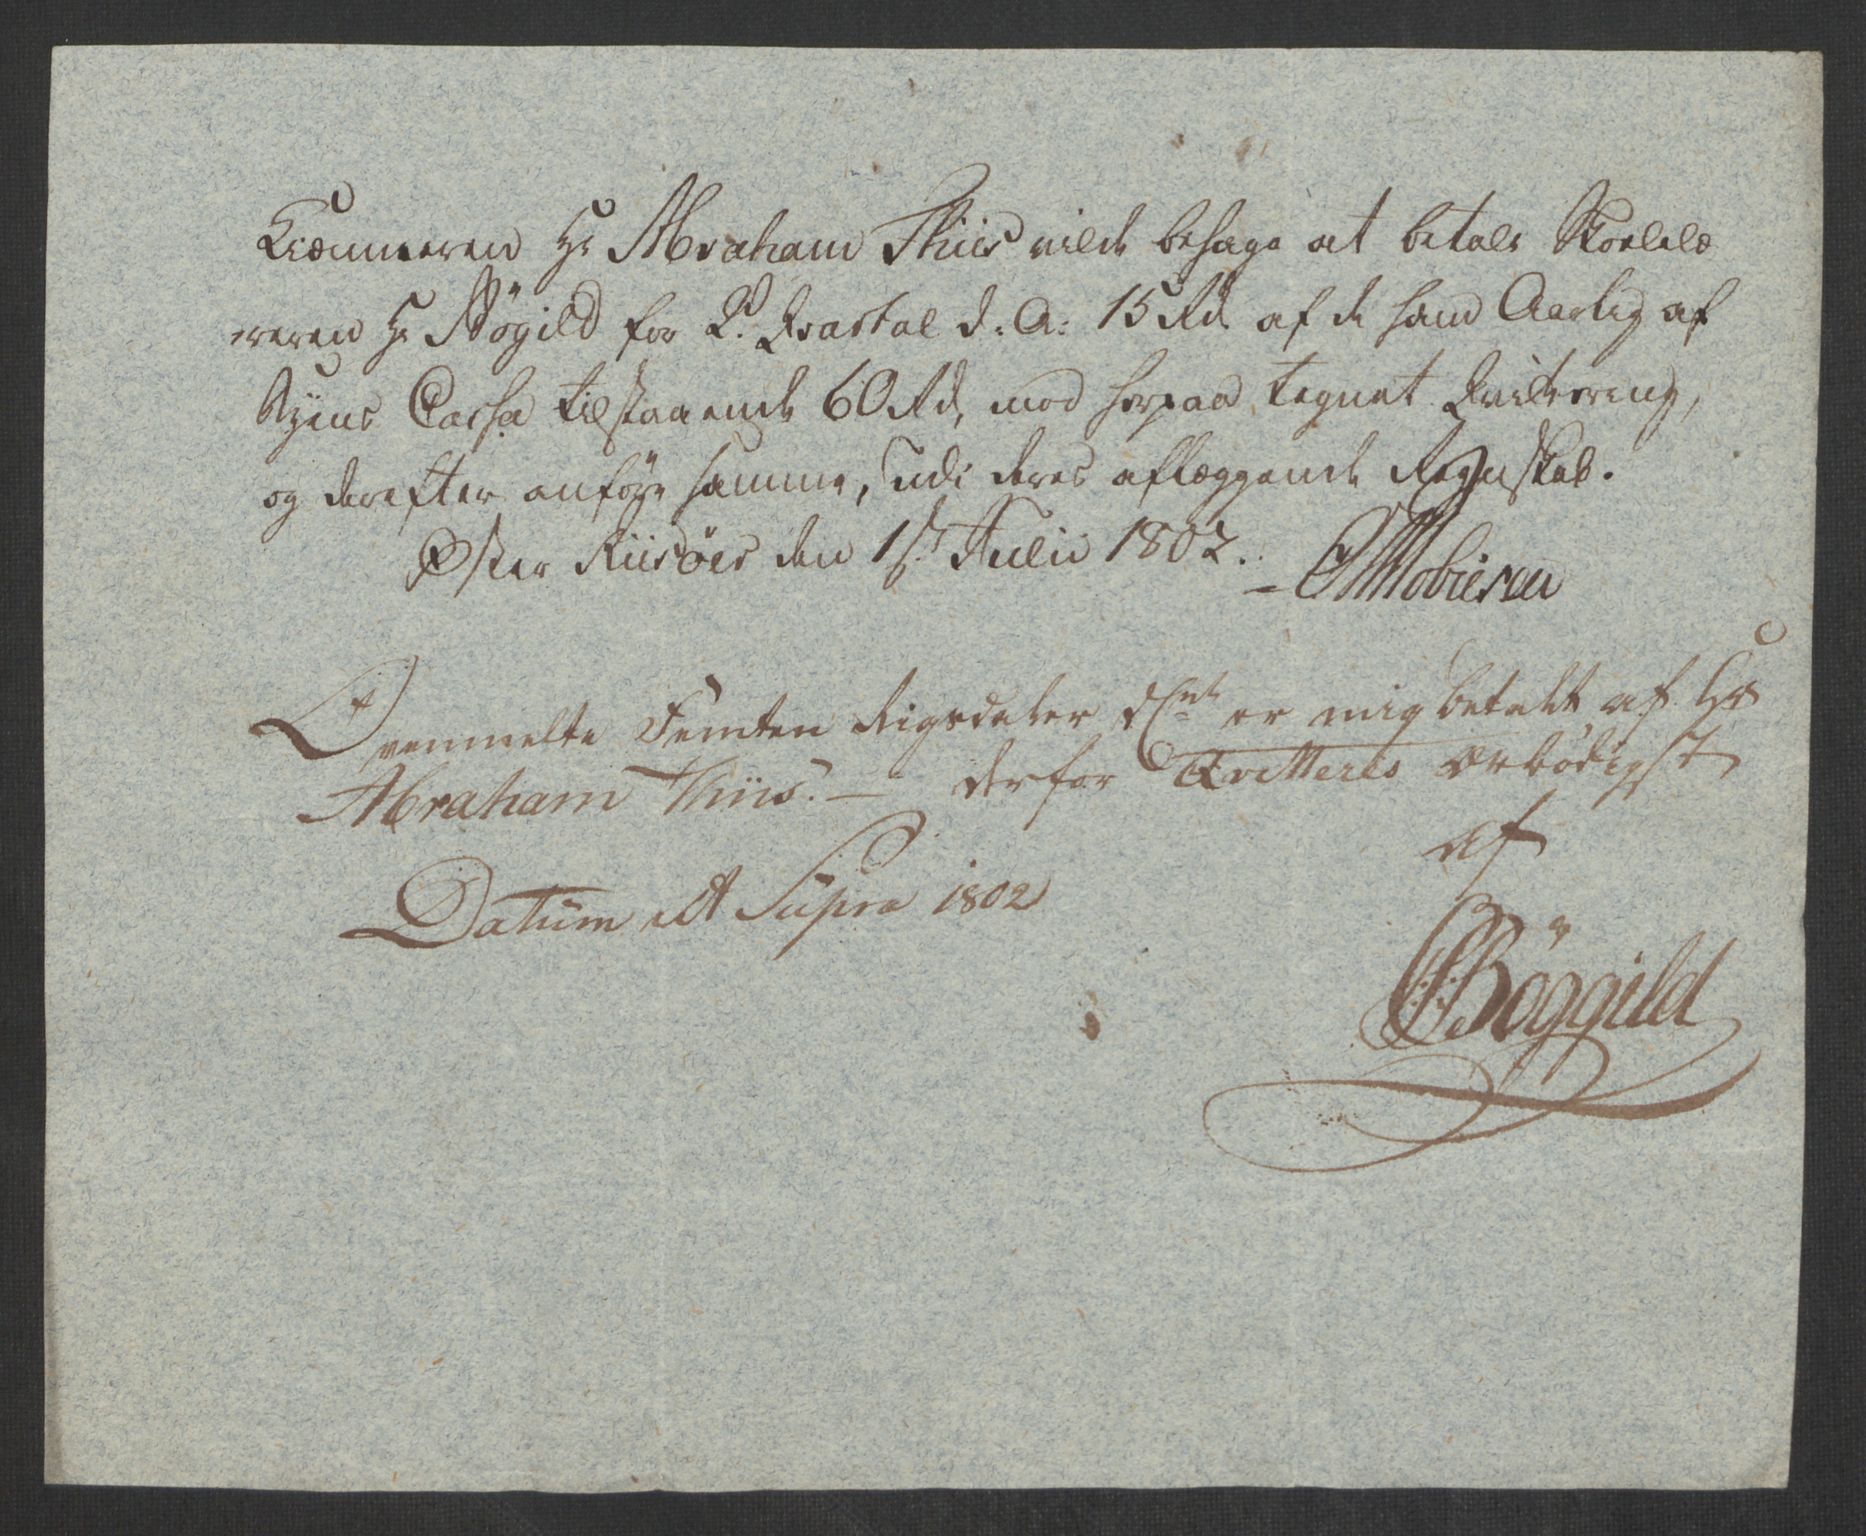 Kiæmneren Hr Abraham Thiis vilde behage at betale Skolelæ
reren Hr Bögild for 2d. Qvartal d: A: 15 Rd af de ham Aarlig af
Byens Cassa tilstaaende 60 Rd, mod herpaa tegnet Qvittering,
og derefter anføre samme, udi deres aflæggende Regnskab.
Øster Riisöer den 1st Julii 1802.
Mobiesen
Ovenmelte Femten Rigsdaler er mig betalt af Hr
Abraham Thiis. — derfor Qvitteres ærbödigst
af
Datum ut Supra 1802
Böggild